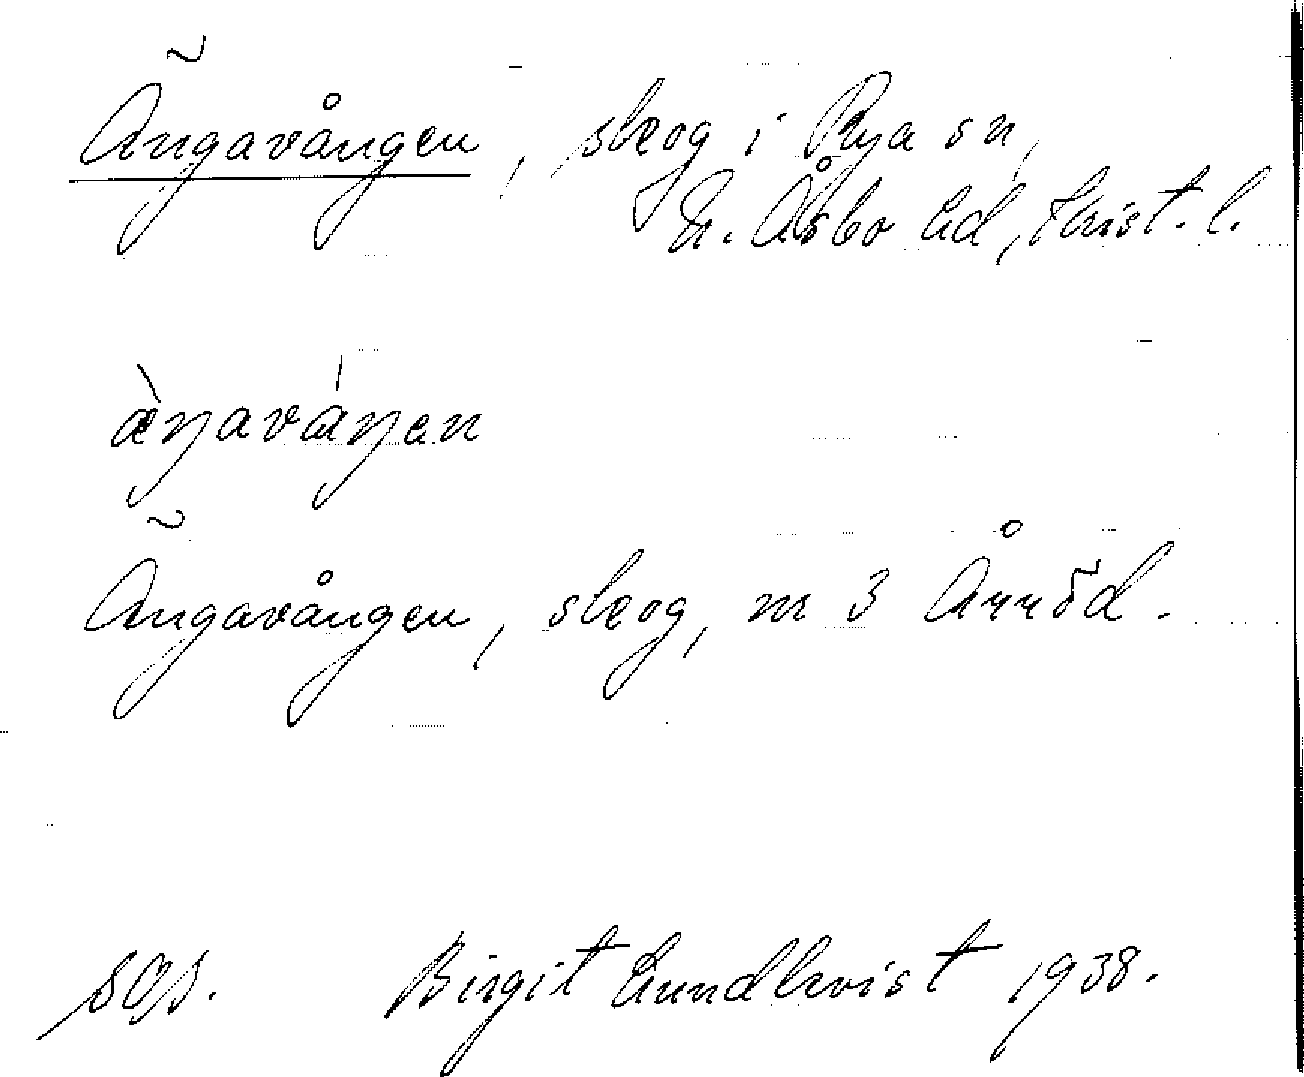 Ängavången, skog i Rya sn,
N. Åsbo hd, Krist. l.
àŋaváŋen
Ängavången, skog, nr 3 Årröd.
SOS. Birgit Lundkvist 1938.